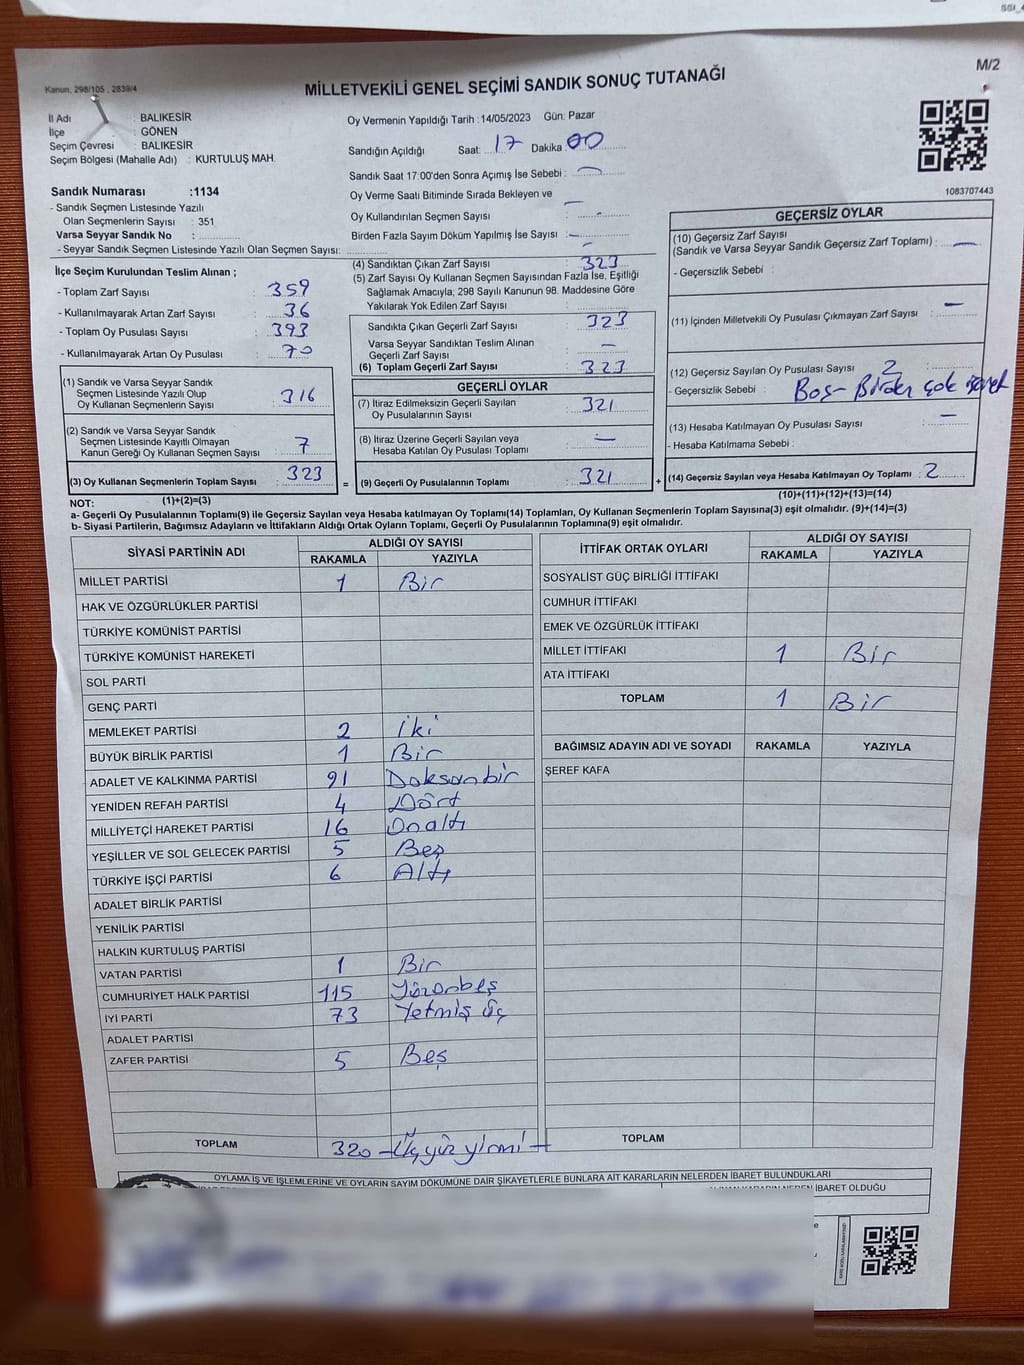 SSI_4
M/2
Kanun, 298/105 , 2839/4
MİLLETVEKİLİ GENEL SEÇİMİ SANDIK SONUÇ TUTANAĞI
İl Adı : BALIKESİR
İlçe : GÖNEN
Seçim Çevresi : BALIKESİR
Seçim Bölgesi (Mahalle Adı) : KURTULUŞ MAH.
Sandık Numarası :1134
- Sandık Seçmen Listesinde Yazılı
Olan Seçmenlerin Sayısı : 351
Varsa Seyyar Sandık No :
- Seyyar Sandık Seçmen Listesinde Yazılı Olan Seçmen Sayısı:
Oy Vermenin Yapıldığı Tarih :14/05/2023 Gün: Pazar
Sandığın Açıldığı Saat: 17 Dakika: 00
Sandık Saat 17:00'den Sonra Açımış İse Sebebi : —
Oy Verme Saati Bitiminde Sırada Bekleyen ve
Oy Kullandırılan Seçmen Sayısı : —
Birden Fazla Sayım Döküm Yapılmış İse Sayısı : —
1083707443
İlçe Seçim Kurulundan Teslim Alınan ;
- Toplam Zarf Sayısı : 359
- Kullanılmayarak Artan Zarf Sayısı : 36
- Toplam Oy Pusulası Sayısı : 393
- Kullanılmayarak Artan Oy Pusulası : 70
(1) Sandık ve Varsa Seyyar Sandık
Seçmen Listesinde Yazılı Olup
Oy Kullanan Seçmenlerin Sayısı : 316
(2) Sandık ve Varsa Seyyar Sandık
Seçmen Listesinde Kayıtlı Olmayan
Kanun Gereği Oy Kullanan Seçmen Sayısı : 7
(3) Oy Kullanan Seçmenlerin Toplam Sayısı : 323
(1)+(2)=(3)
(4) Sandıktan Çıkan Zarf Sayısı : 323
(5) Zarf Sayısı Oy Kullanan Seçmen Sayısından Fazla İse, Eşitliği
Sağlamak Amacıyla, 298 Sayılı Kanunun 98. Maddesine Göre
Yakılarak Yok Edilen Zarf Sayısı :
Sandıkta Çıkan Geçerli Zarf Sayısı : 323
Varsa Seyyar Sandıktan Teslim Alınan
Geçerli Zarf Sayısı : —
(6) Toplam Geçerli Zarf Sayısı : 323
GEÇERLİ OYLAR
(7) İtiraz Edilmeksizin Geçerli Sayılan
Oy Pusulalarının Sayısı : 321
(8) İtiraz Üzerine Geçerli Sayılan veya
Hesaba Katılan Oy Pusulası Toplamı : —
= (9) Geçerli Oy Pusulalarının Toplamı : 321 +
GEÇERSİZ OYLAR
(10) Geçersiz Zarf Sayısı
(Sandık ve Varsa Seyyar Sandık Geçersiz Zarf Toplamı) : —
- Geçersizlik Sebebi :
(11) İçinden Milletvekili Oy Pusulası Çıkmayan Zarf Sayısı : —
(12) Geçersiz Sayılan Oy Pusulası Sayısı : 2
- Geçersizlik Sebebi : Boş - Birden çok işaret
(13) Hesaba Katılmayan Oy Pusulası Sayısı : —
- Hesaba Katılmama Sebebi :
(14) Geçersiz Sayılan veya Hesaba Katılmayan Oy Toplamı : 2
(10)+(11)+(12)+(13)=(14)
NOT:
a- Geçerli Oy Pusulalarının Toplamı(9) ile Geçersiz Sayılan veya Hesaba katılmayan Oy Toplamı(14) Toplamları, Oy Kullanan Seçmenlerin Toplam Sayısına(3) eşit olmalıdır. (9)+(14)=(3)
b- Siyasi Partilerin, Bağımsız Adayların ve İttifakların Aldığı Ortak Oyların Toplamı, Geçerli Oy Pusulalarının Toplamına(9) eşit olmalıdır.
SİYASİ PARTİNİN ADI ALDIĞI OY SAYISI
RAKAMLA YAZIYLA
MİLLET PARTİSİ 1 Bir
HAK VE ÖZGÜRLÜKLER PARTİSİ
TÜRKİYE KOMÜNİST PARTİSİ
TÜRKİYE KOMÜNİST HAREKETİ
SOL PARTİ
GENÇ PARTİ
MEMLEKET PARTİSİ 2 İki
BÜYÜK BİRLİK PARTİSİ 1 Bir
ADALET VE KALKINMA PARTİSİ 91 Doksanbir
YENİDEN REFAH PARTİSİ 4 Dört
MİLLİYETÇİ HAREKET PARTİSİ 16 Onaltı
YEŞİLLER VE SOL GELECEK PARTİSİ 5 Beş
TÜRKİYE İŞÇİ PARTİSİ 6 Altı
ADALET BİRLİK PARTİSİ
YENİLİK PARTİSİ
HALKIN KURTULUŞ PARTİSİ
VATAN PARTİSİ 1 Bir
CUMHURİYET HALK PARTİSİ 115 Yüzonbeş
İYİ PARTİ 73 Yetmiş üç
ADALET PARTİSİ
ZAFER PARTİSİ 5 Beş
TOPLAM 320 - Üçyüz yirmi -
İTTİFAK ORTAK OYLARI ALDIĞI OY SAYISI
RAKAMLA YAZIYLA
SOSYALİST GÜÇ BİRLİĞİ İTTİFAKI
CUMHUR İTTİFAKI
EMEK VE ÖZGÜRLÜK İTTİFAKI
MİLLET İTTİFAKI 1 Bir
ATA İTTİFAKI
TOPLAM 1 Bir
BAĞIMSIZ ADAYIN ADI VE SOYADI RAKAMLA YAZIYLA
ŞEREF KAFA
TOPLAM
OYLAMA İŞ VE İŞLEMLERİNE VE OYLARIN SAYIM DÖKÜMÜNE DAİR ŞİKAYETLERLE BUNLARA AİT KARARLARIN NELERDEN İBARET BULUNDUKLARI
İBARET OLDUĞU